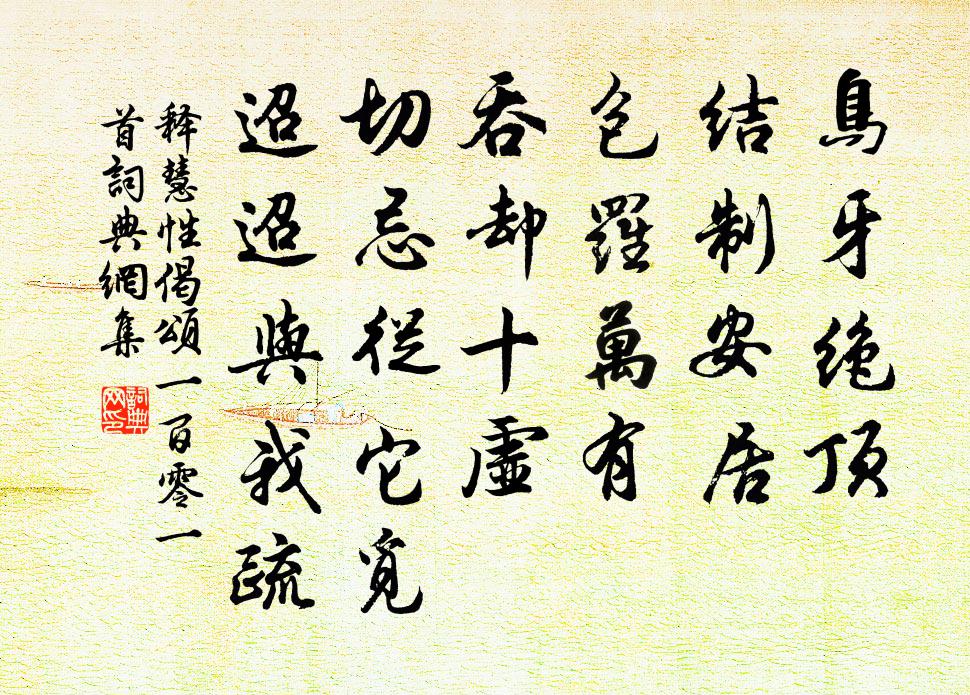 鳥牙絕頂
結制安居
包羅萬有
吞却十虛
切忌從它覓
迢迢與我疏
釋慧性偈頌一百零一
首詞典網集
詞典
网印